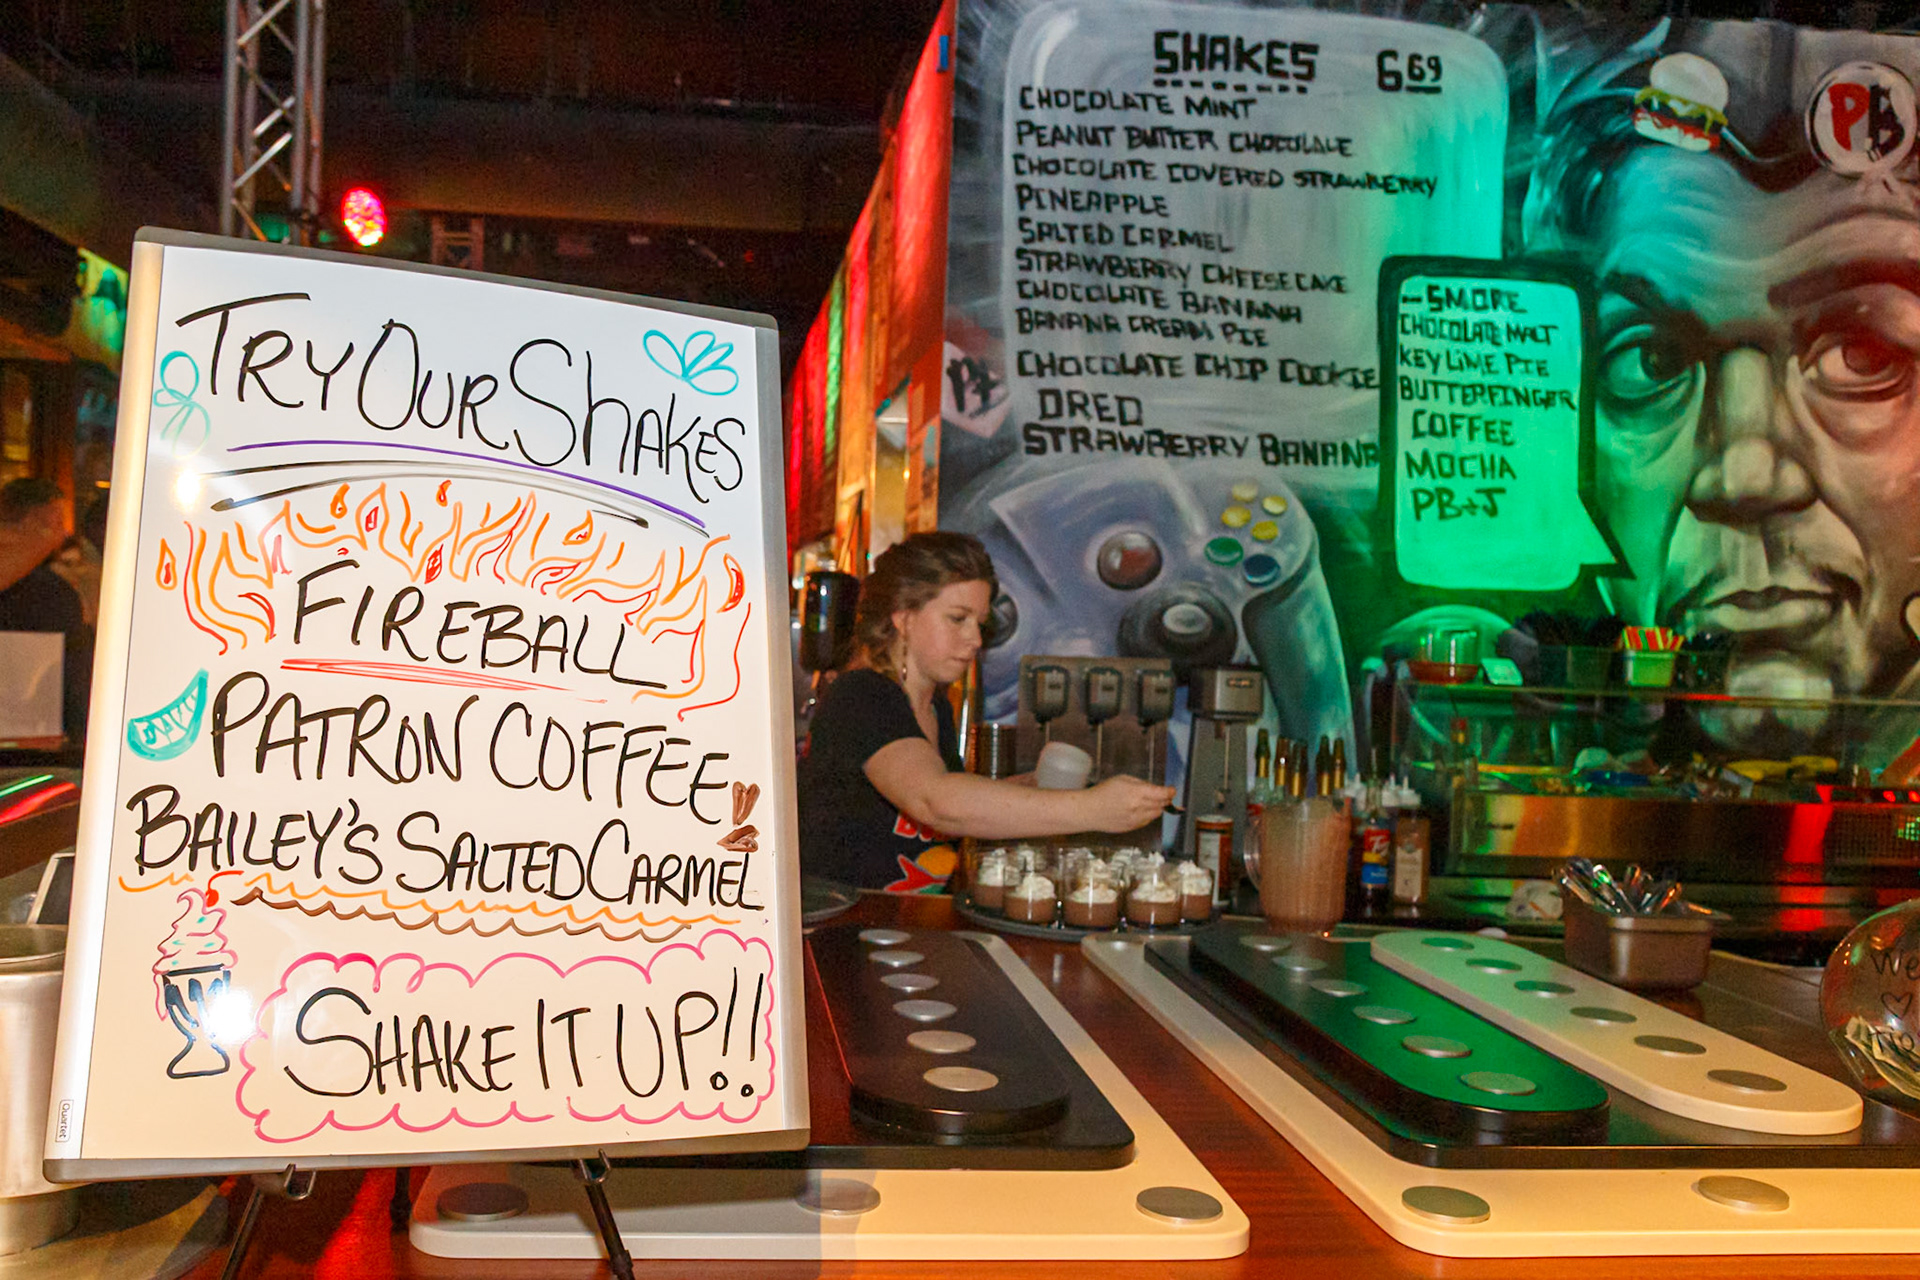 TRY OUR SHAKES
FIREBALL
PATRON COFFEE
BAILEY'S SALTED CARMEL
SHAKE IT UP!!
Quartet
SHAKES 6.69
CHOCOLATE MINT
PEANUT BUTTER CHOCOLALE
CHOCOLATE COVERED STRAWBERRY
PINEAPPLE
SALTED CARMEL
STRAWBERRY CHEESECAKE
CHOCOLATE BANANA
BANANA CREAM PIE
CHOCOLATE CHIP COOKIE
OREO
STRAWBERRY BANANA
-SMORE
CHOCOLATE MALT
KEY LIME PIE
BUTTERFINGER
COFFEE
MOCHA
PB+J
PB
We